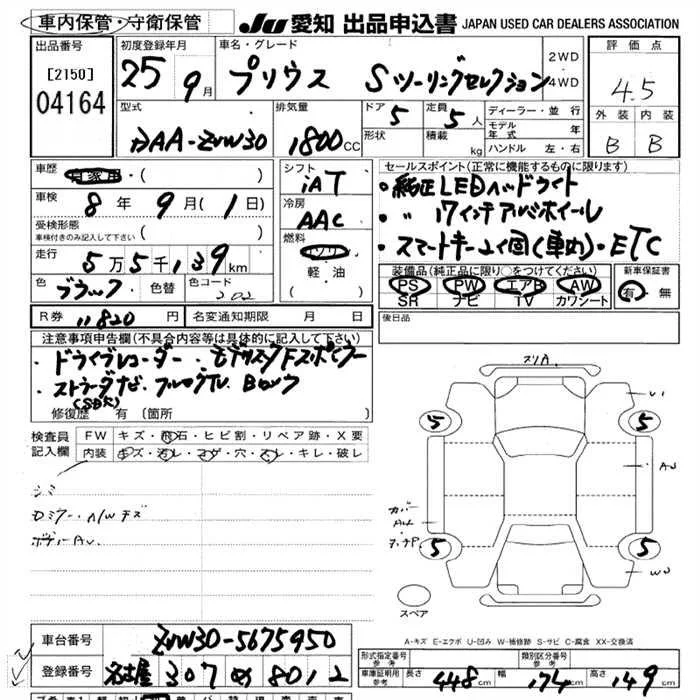 車内保管・守衛保管
JU 愛知 出品申込書 JAPAN USED CAR DEALERS ASSOCIATION
出品番号
[2150]
04164
初度登録年月
25 9月
車名・グレード
プリウス Sツーリングセレクション
2WD
4WD
評価点
4.5
外装 内装
B B
型式
DAA-ZVW30
排気量
1800cc
ドア
5
定員
5人
形状
積載
kg
ディーラー・並行
モデル年式 年
ハンドル 左・右
車歴
自家用・( )
車検
8年 9月( 1日)
受検形態
車検付きのみ記入して下さい ( )
走行
5万5千139km
色
ブラック
色替
色コード
202
シフト
iAT
冷房
AAC
燃料
ガソリン
軽・油
セールスポイント(正常に機能するものに限ります)
・純正LEDヘッドライト
・〃 17インチアルミホイール
・スマートキー2個(車内)・ETC
装備品(純正品に限り○をつけてください)
PS PW エアB AW
SR ナビ TV カワシート
新車保証書
有・無
R券
11820円
名変通知期限 月 日
後日品
注意事項申告欄(不具合内容等は具体的に記入して下さい)
・ドライブレコーダー・モデリスタFスポイラー
・ストラーダナビ・フルセグTV Bカメラ
修復歴 有 〔箇所
検査員記入欄
FW キズ・飛石・ヒビ割・リペア跡・X要
内装 キズ・汚レ・コゲ・穴・スレ・キレ・破レ
シミ
Dミラー・A/Wキズ
スリA
U1
5
5
5
5
W2
スペア
A-キズ E-エクボ U-凹み W-補修跡 S-サビ C-腐食 XX-交換済
車台番号
ZVW30-5675950
登録番号
名古屋 307 め 8012
形式指定番号 参考
類別区分番号 参考
車庫証明用 参考
長さ 448cm
幅 174cm
高さ 149cm